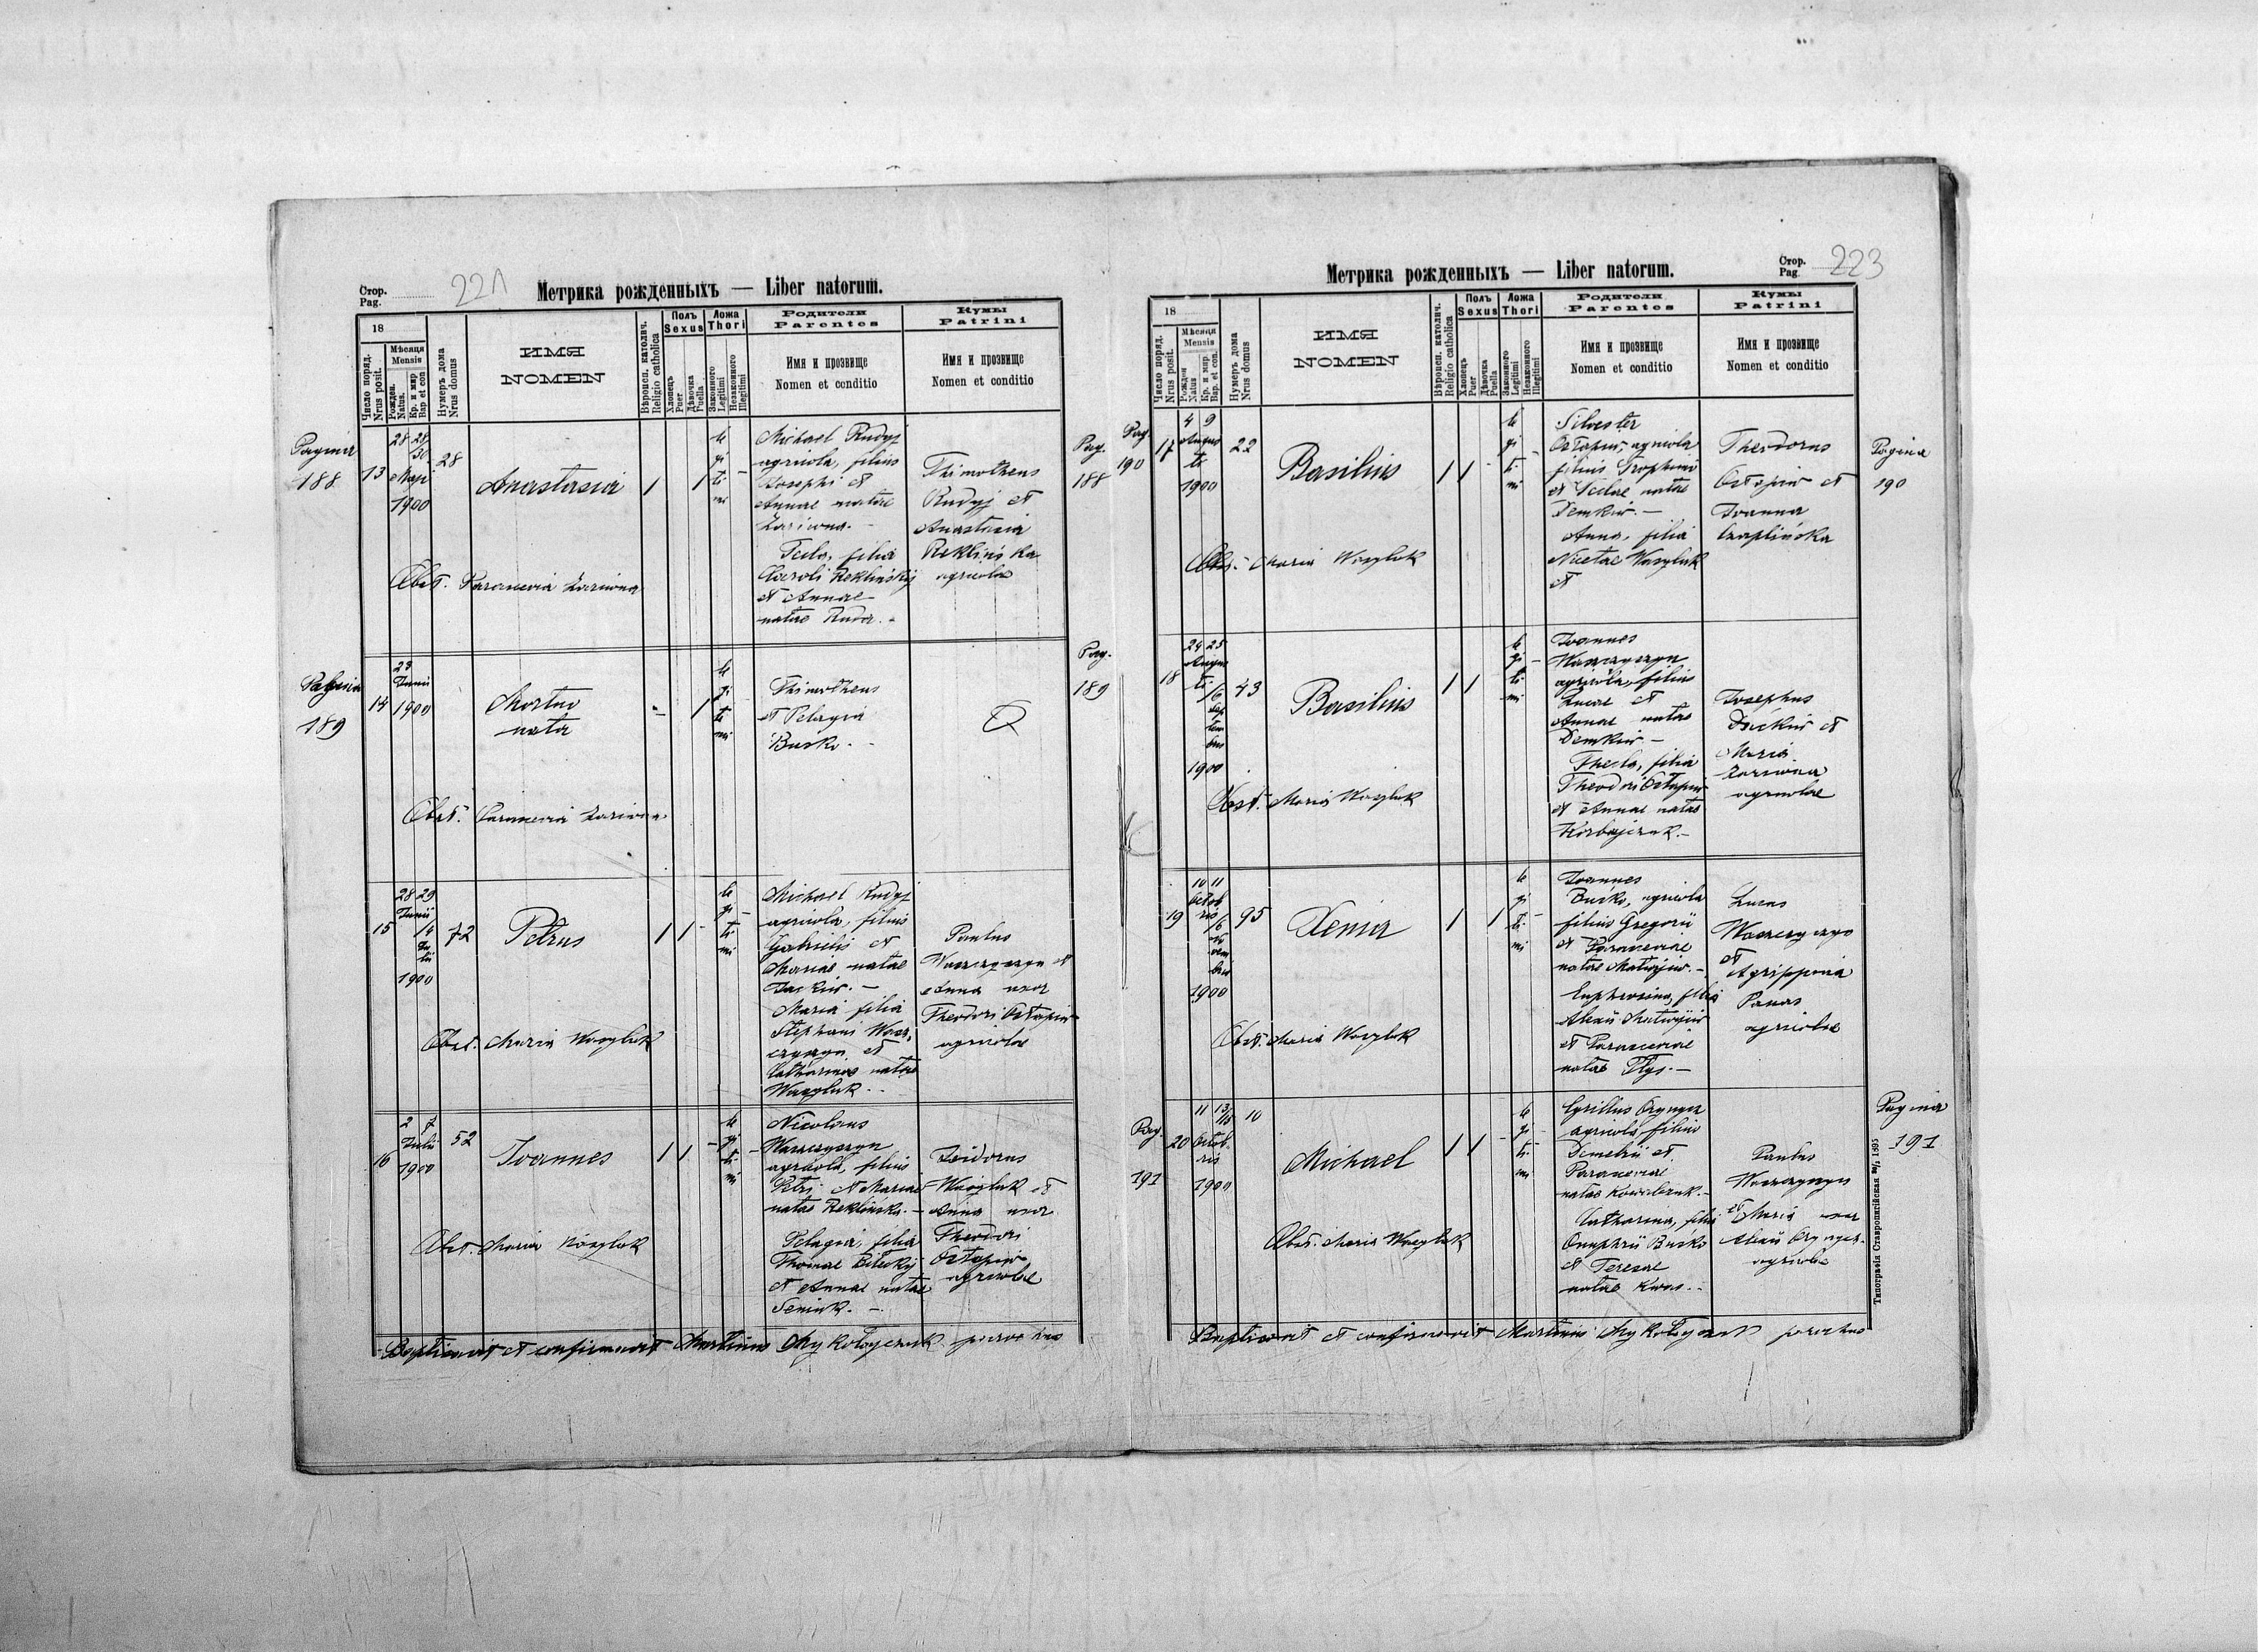 Стор.
Pag. 221
Метрика рожденныхъ — Liber natorum.
18
Число поряд.
Nrus posit.
Мѣсяця
Mensis
Рожден.
Natus.
Кр. и мир
Bap et con
Нумеръ дома
Nrus domus
ИМЯ
NOMEN
Вѣроисп. католич.
Religio catholica
Полъ
Sexus
Хлопецъ
Puer
Дѣвочка
Puella
Ложа
Thori
Законного
Legitimi
Незаконного
Illegitimi
Родители
Parentes
Имя и прозвище
Nomen et conditio
Кумы
Patrini
Имя и прозвище
Nomen et conditio
Pagina
188
13
28 28/30
Maji
1900
28
Anastasia
1 1
legitimi
Michael Rudyj
agricola, filius
Josephi et
Annae natae
Lariwna. -
Tecla, filia
Caroli Rekliński
et Annae
natae Ruda. -
Thimotheus
Rudyj et
Anastasia
Reklińska
agricolae
Obst. Parascevia Lariwna
Pag.
188
Pagina
189
14
23
Junii
1900
Mortuo
nata
- 1
legitimi
Thimotheus
et Pelagia
Busko. -
Obst. Parascevia Lariwna
Pag.
189
15
28 29
Junii
/4
Julii
1900
72
Petrus
1 1 -
legitimi
Michael Rudyj
agricola, filius
Gabrielis et
Mariae natae
Dackiw. -
Maria filia
Stephani Wasz-
czyszyn et
Catharinae natae
Wasyluk. -
Paulus
Waszczyszyn et
Anna uxor
Theodori Ostapiw
agricolae
Obst. Maria Wasyluk
16
2 7
Julii
1900
52
Joannes
1 1 -
legitimi
Nicolaus
Waszczyszyn
agricola, filius
Petri et Mariae
natae Reklińska. -
Pelagia, filia
Thomae Bilecky
et Annae natae
Seniuk. -
Isidorus
Wasyluk et
Anna uxor
Theodori
Ostapiw
agricolae
Obst. Maria Wasyluk
Baptisavit et confirmavit Martinus Mykołajczuk parochus
Метрика рожденныхъ — Liber natorum.
Стор.
Pag. 223
18
Число поряд.
Nrus posit.
Мѣсяця
Mensis
Рожден
Natus
Кр. и мир.
Bap. et con.
Нумеръ дома
Nrus domus
ИМЯ
NOMEN
Вѣроисп. католич.
Religio catholica
Полъ
Sexus
Хлопецъ
Puer
Дѣвочка
Puella
Ложа
Thori
Законного
Legitimi
Незаконного
Illegitimi
Родители
Parentes
Имя и прозвище
Nomen et conditio
Кумы
Patrini
Имя и прозвище
Nomen et conditio
Pag.
190
17
4 9
Augusti
1900
22
Basilius
1 1 -
legitimi
Silvester
Ostapiw, agricola
filius Trophimi
et Teclae natae
Demkiw. -
Anna, filia
Nicetae Wasyluk
et
Theodorus
Ostapiw et
Joanna
Czaplińska
Obst. Maria Wasyluk
Pagina
190
18
24 25
Augusti
/6
Septembris
1900
43
Basilius
1 1
legitimi
Joannes
Waszczyszyn
agricola, filius
Lucae et
Annae natae
Demkiw -
Thecla, filia
Theodori Ostapiw
et Annae natae
Korbajczuk. -
Josephus
Dackiw et
Maria
Lariwna
agricolae
Obst. Maria Wasyluk
19
10 11
Octobris
/6
Novembris
1900
95
Xenia
1 1
legitimi
Joannes
Busko, agricola
filius Gregorii
et Parasceviae
natae Matwijiw. -
Euphrosina, filia
Alexii Matwijiw
et Parasceviae
natae Płys. -
Lucas
Waszczyszyn
et
Agrippina
Panas
agricolae
Obst. Maria Wasyluk
Pag.
191
20
11 13/15
Octobris
1900
10
Michael
1 1 -
legitimi
Cyrillus Orynger
agricola, filius
Demetrii et
Parasceviae
natae Kowalczuk. -
Catharina, filia
Onuphrii Busko
et Teresae
natae Kwas. -
Paulus
Waszczyszyn
et Maria uxor
Alexii Oryngera
agricolae
Obst. Maria Wasyluk
Pagina
191
Типографія Ставропигійская 1895
Baptisavit et confirmavit Martinus Mykołajczuk parochus